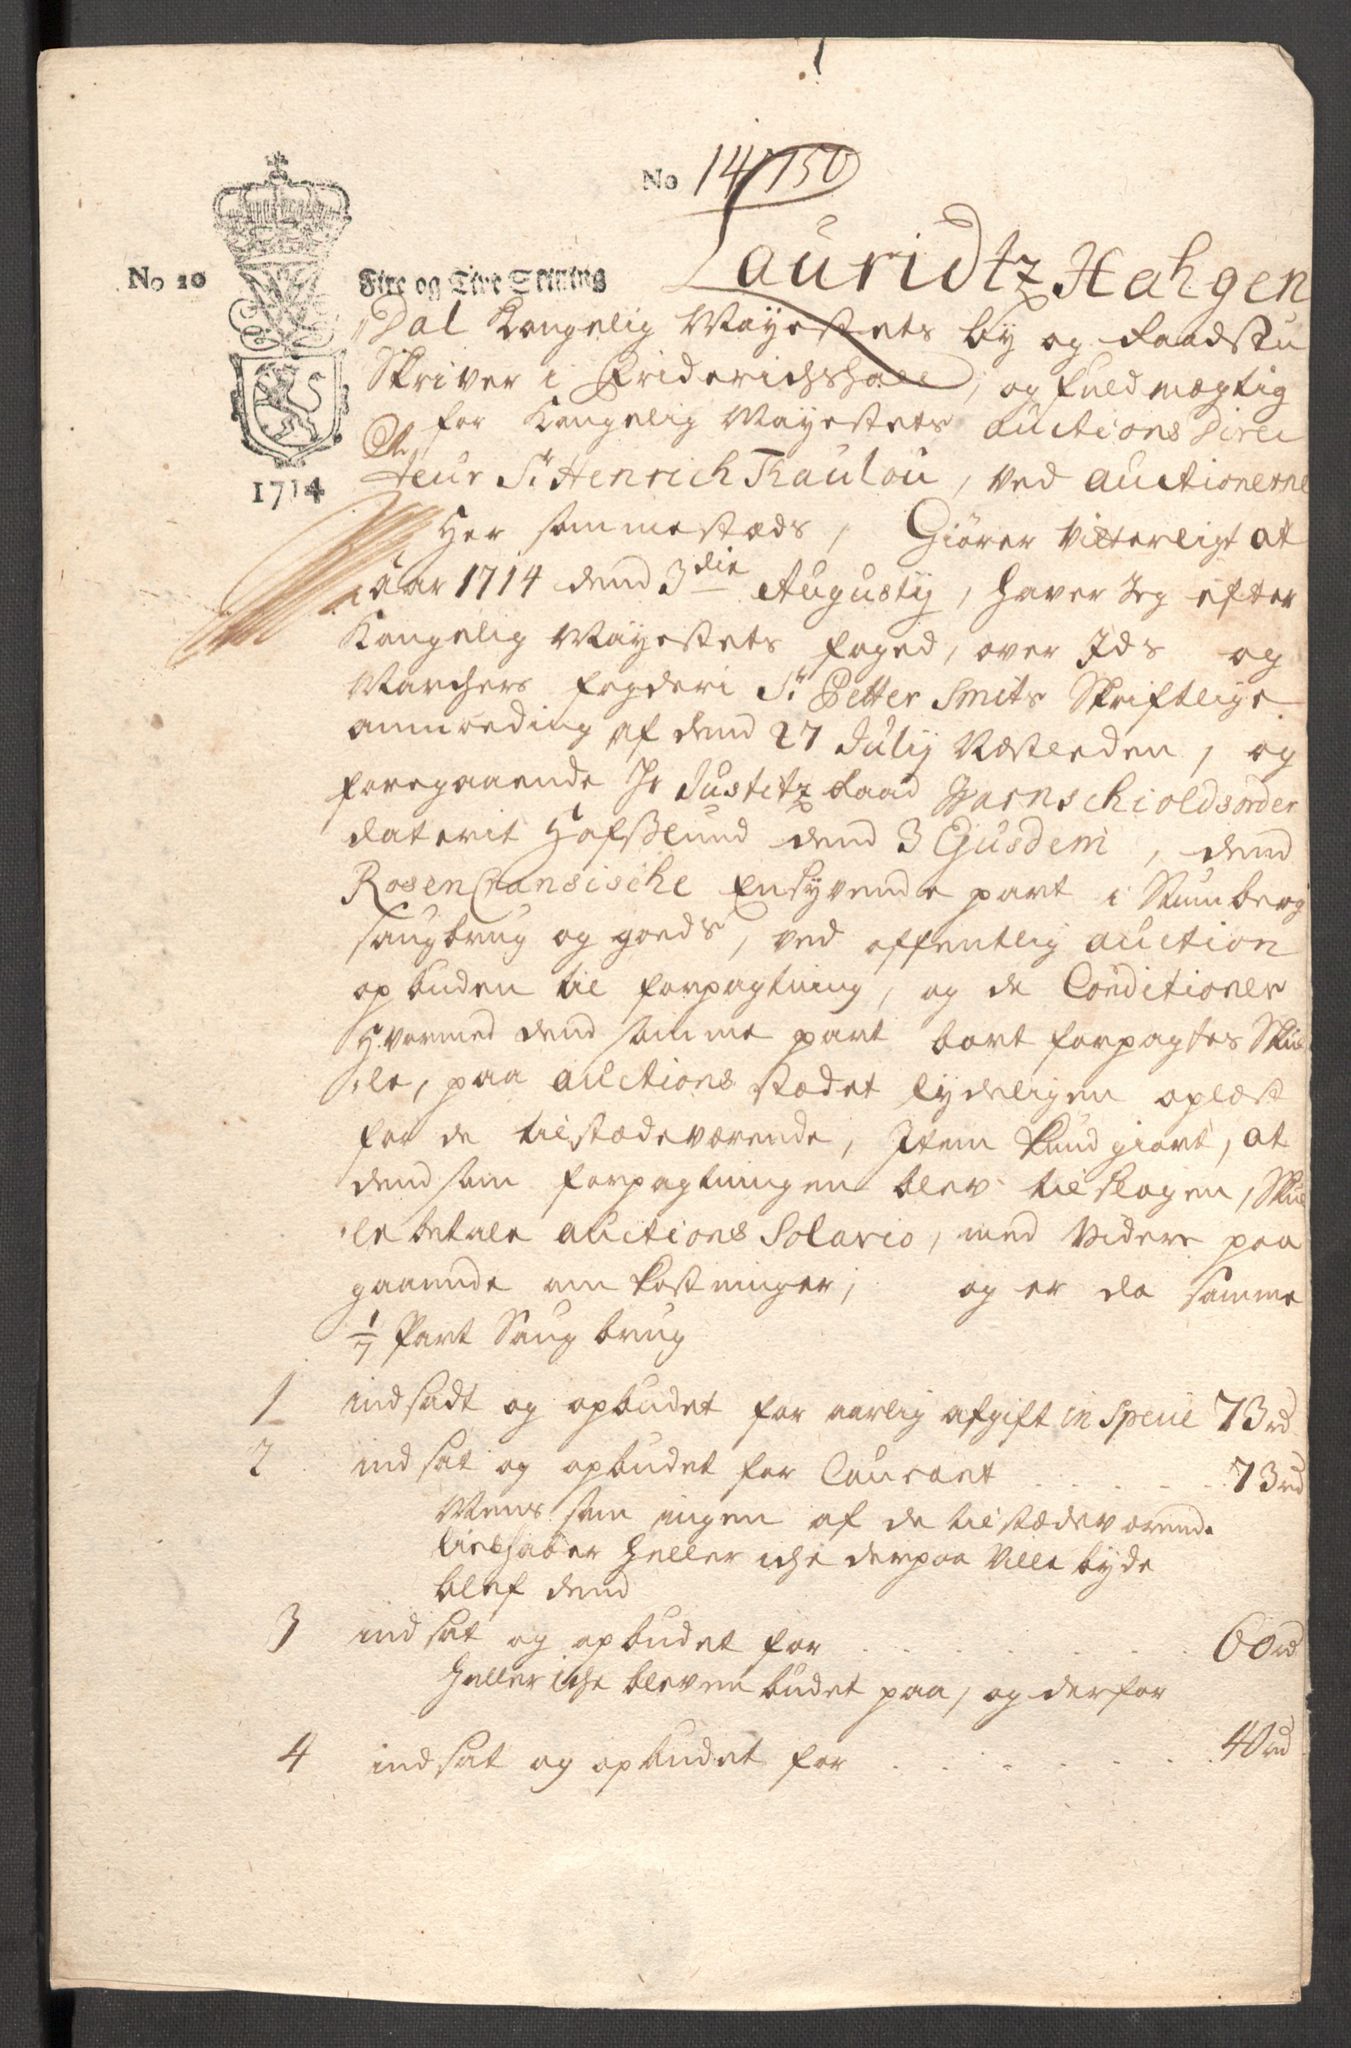 No 14750
No 20
Fire og Tive Skilling
1714
Lauridtz Hahgen
Dal Kongelig Mayestets by og Raadstu
Skriver i Friderichshald, og fuldmegtig
for Kongelig Mayestets Auctions Direc
teur Sr Henrich Thaulou, ved auctionerne
Her sammestæds, Giører Vitterligt at
aar 1714 dend 3die Augusty, haver Jeg efter
Kongelig Mayestets foged, over Ids og
Marchers fogderi Sr Petter Smits Skriftlige
anmoeding af dend 27 July Næstleden, og
foregaaende Hr Justitz Raad Wernschiolds order
daterit Hafslund dend 3 Ejusdem, dend
RosenCransische Ensyvende part i
Saugbrug og goeds, ved offentlig auction
opbuden til forpagtning, og de Conditioner
Hvormed dend samme part bort forpagtes Skul
le, paa auctions stædet lydeligen oplæst
for de tilstædeværende, Item kund giort, at
dend som forpagtningen blev tilslagen, Skul
le betale auctions Solario, med Videre paa
gaaende om kostninger; og er da samme
1/7 Part Saug brug
1 indsadt og opbudet for aarlig afgift in Specie 73rd
2 indsat og opbudet for Courant . . . . . 73rd
Mens som ingen af de tilstædeværende
liebhaber heller iche derpaa Ville byde
blef dend
3 indsat og opbudet for . . . . . . 60rd
heller iche bleven budet paa, og derfor
4 indsat og opbudet for . . . . . . 40rd